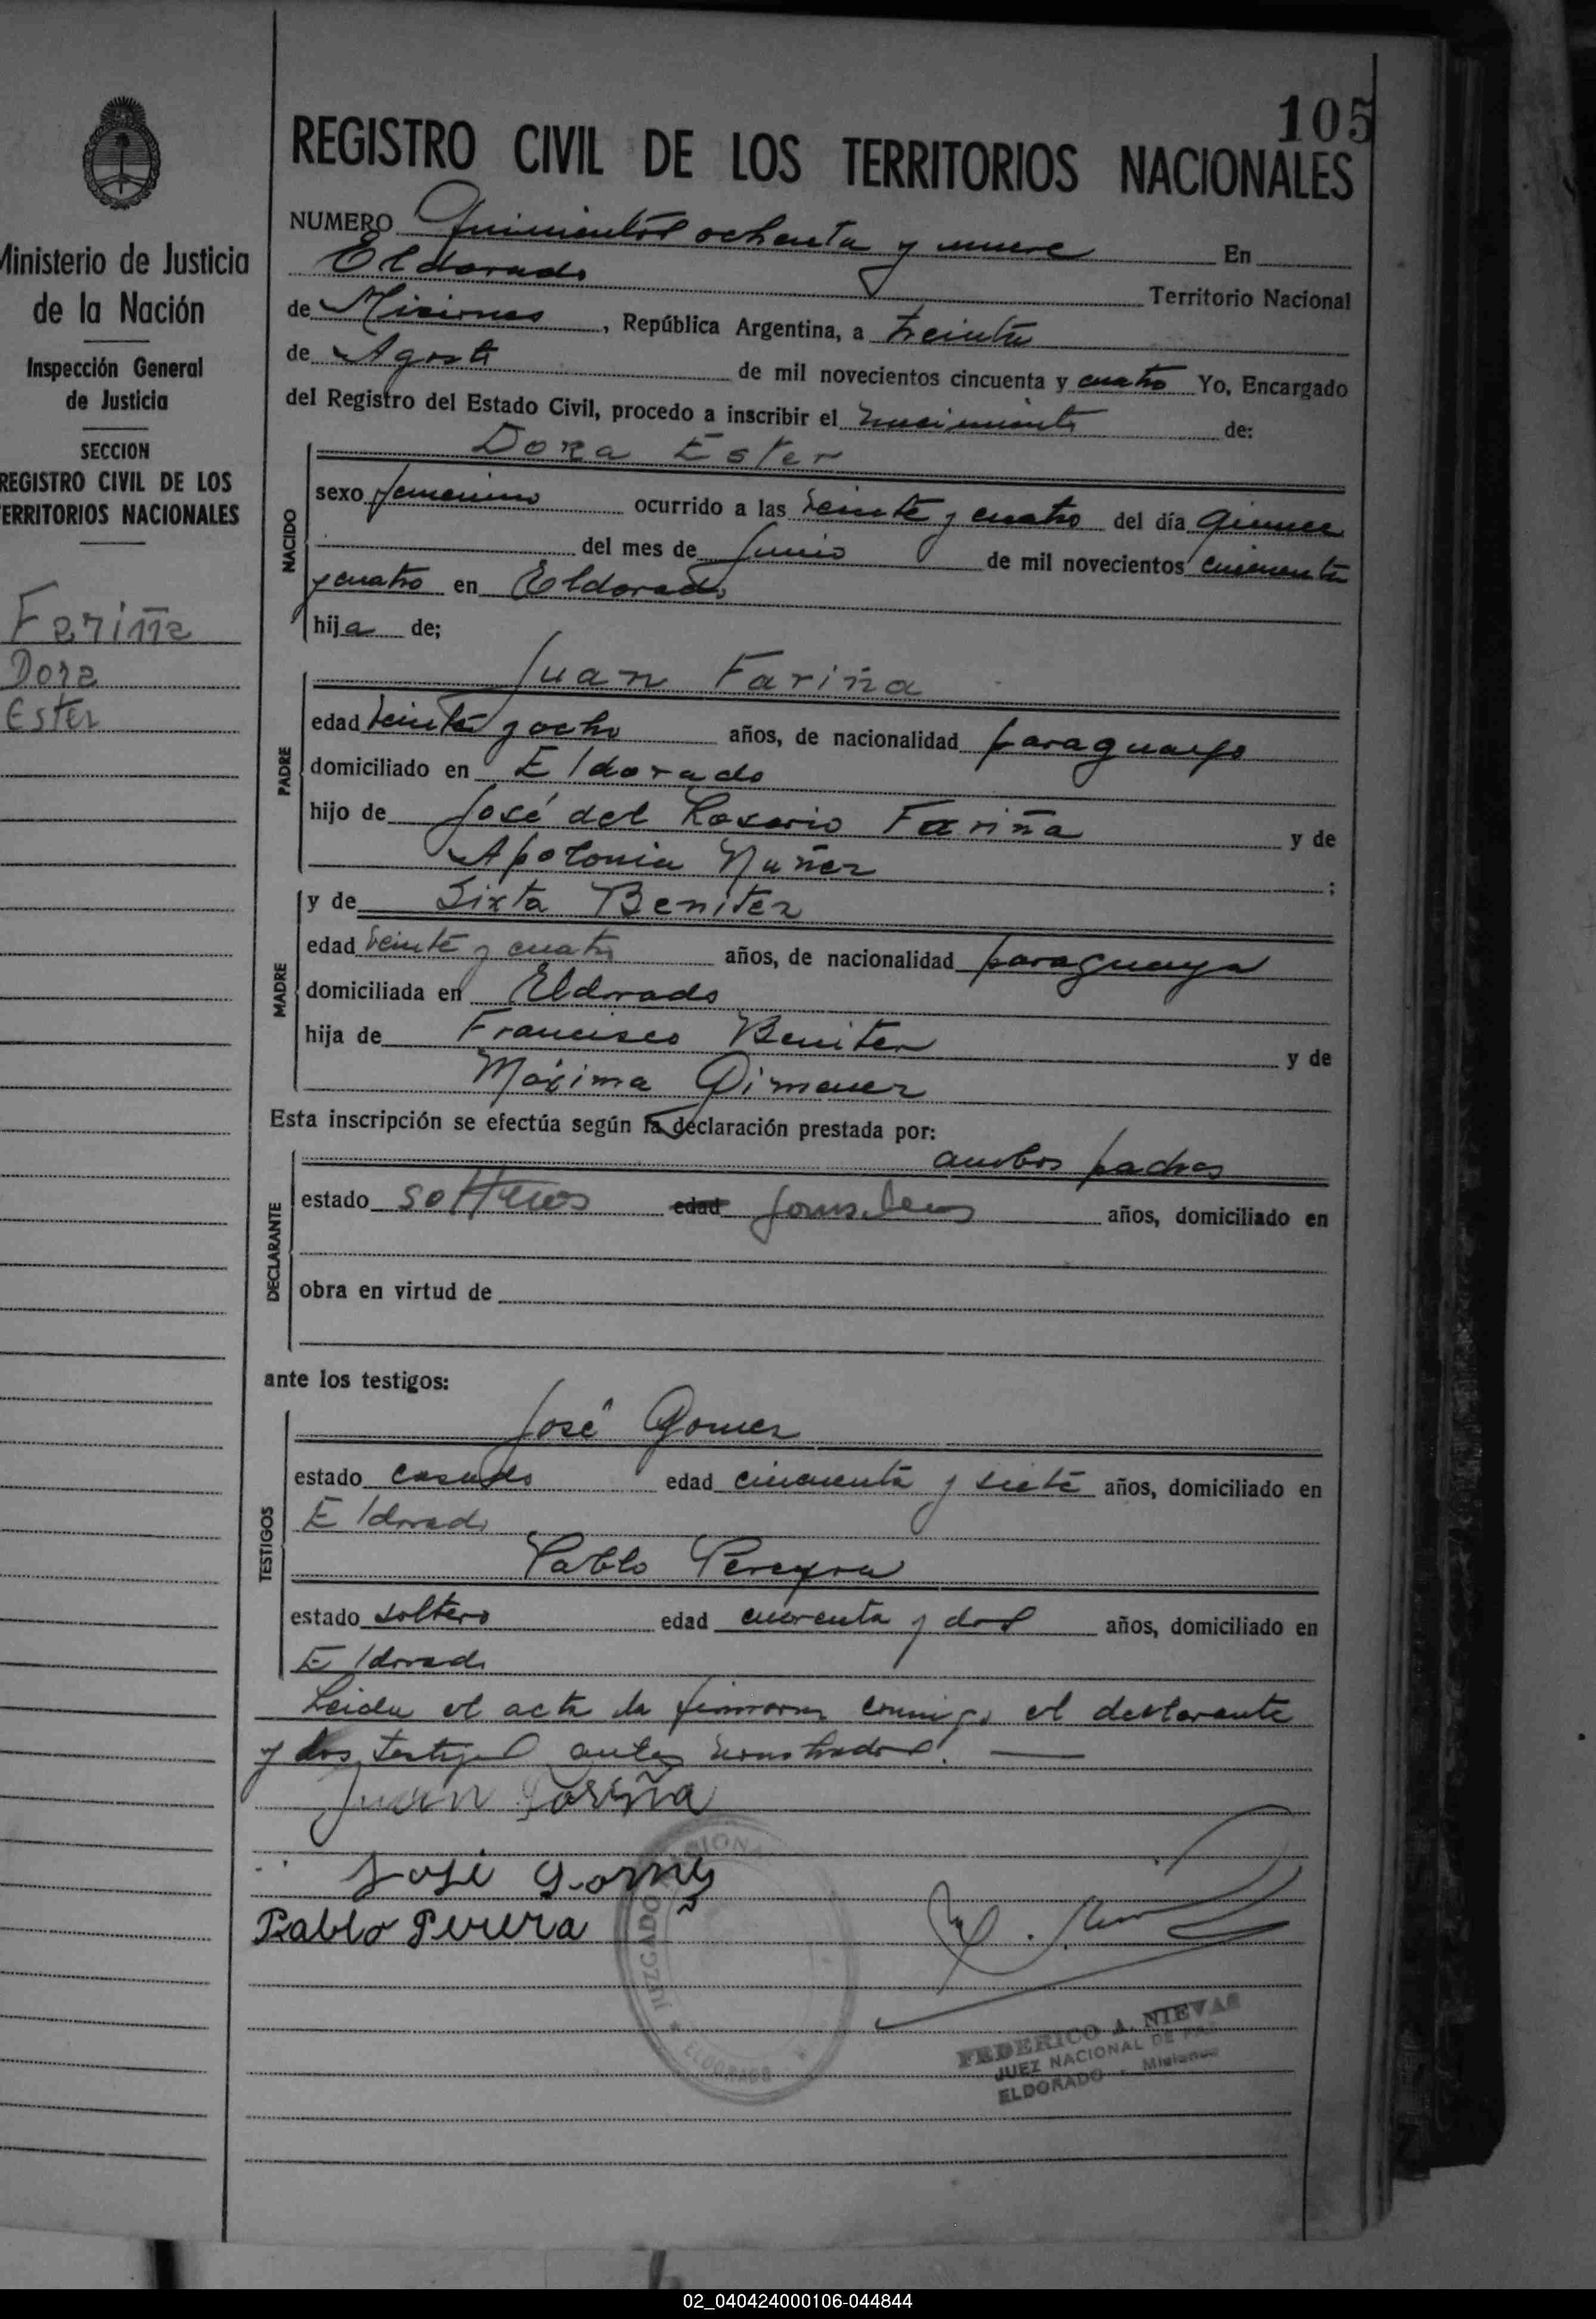 105
REGISTRO CIVIL DE LOS TERRITORIOS NACIONALES
Ministerio de Justicia
de la Nación
Inspección General
de Justicia
SECCION
REGISTRO CIVIL DE LOS
TERRITORIOS NACIONALES
Fariña
Dora
Ester
NUMERO Quinientos ochenta y nueve En
Eldorado Territorio Nacional
de Misiones, República Argentina, a treinta
de Agosto de mil novecientos cincuenta y cuatro Yo, Encargado
del Registro del Estado Civil, procedo a inscribir el nacimiento de:
Dora Ester
NACIDO
sexo femenino ocurrido a las veinte y cuatro del día quince
del mes de Junio de mil novecientos cincuenta
y cuatro en Eldorado
hija de;
Juan Fariña
PADRE
edad veinte y ocho años, de nacionalidad paraguayo
domiciliado en Eldorado
hijo de José del Rosario Fariña y de
Apolonia Nuñez ;
y de Sixta Benitez
MADRE
edad veinte y cuatro años, de nacionalidad paraguaya
domiciliada en Eldorado
hija de Francisco Benitez y de
Máxima Gimenez
Esta inscripción se efectúa según la declaración prestada por:
ambos padres
DECLARANTE
estado solteros edad años, domiciliado en
obra en virtud de
ante los testigos:
José Gomez
TESTIGOS
estado casado edad cincuenta y siete años, domiciliado en
Eldorado
Pablo Pereyra
estado soltero edad cuarenta y dos años, domiciliado en
Eldorado
Leida el acta la firmaron conmigo el declarante
y los testigos antes nombrados.
Juan Fariña
José Gomes
Pablo Perera
JUZGADO NACIONAL
ELDORADO
FEDERICO A. NIEVAS
JUEZ NACIONAL DE PAZ
ELDORADO - Misiones
02_040424000106-044844